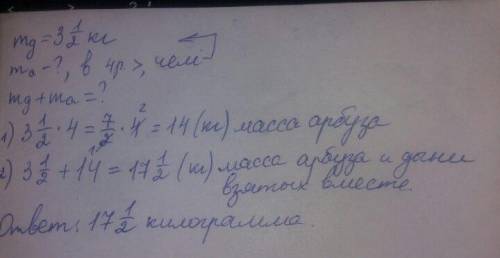 mд = 3 1/2 кг
mа - ?, в 4 р. >, чем
mд + mа = ?
1) 3 1/2 · 4 = 7/2 · 4 2 = 14 (кг) масса арбуза
2) 3 1/2 + 14 = 17 1/2 (кг) масса арбуза и дыни
взятых вместе.
Ответ: 17 1/2 килограмма.